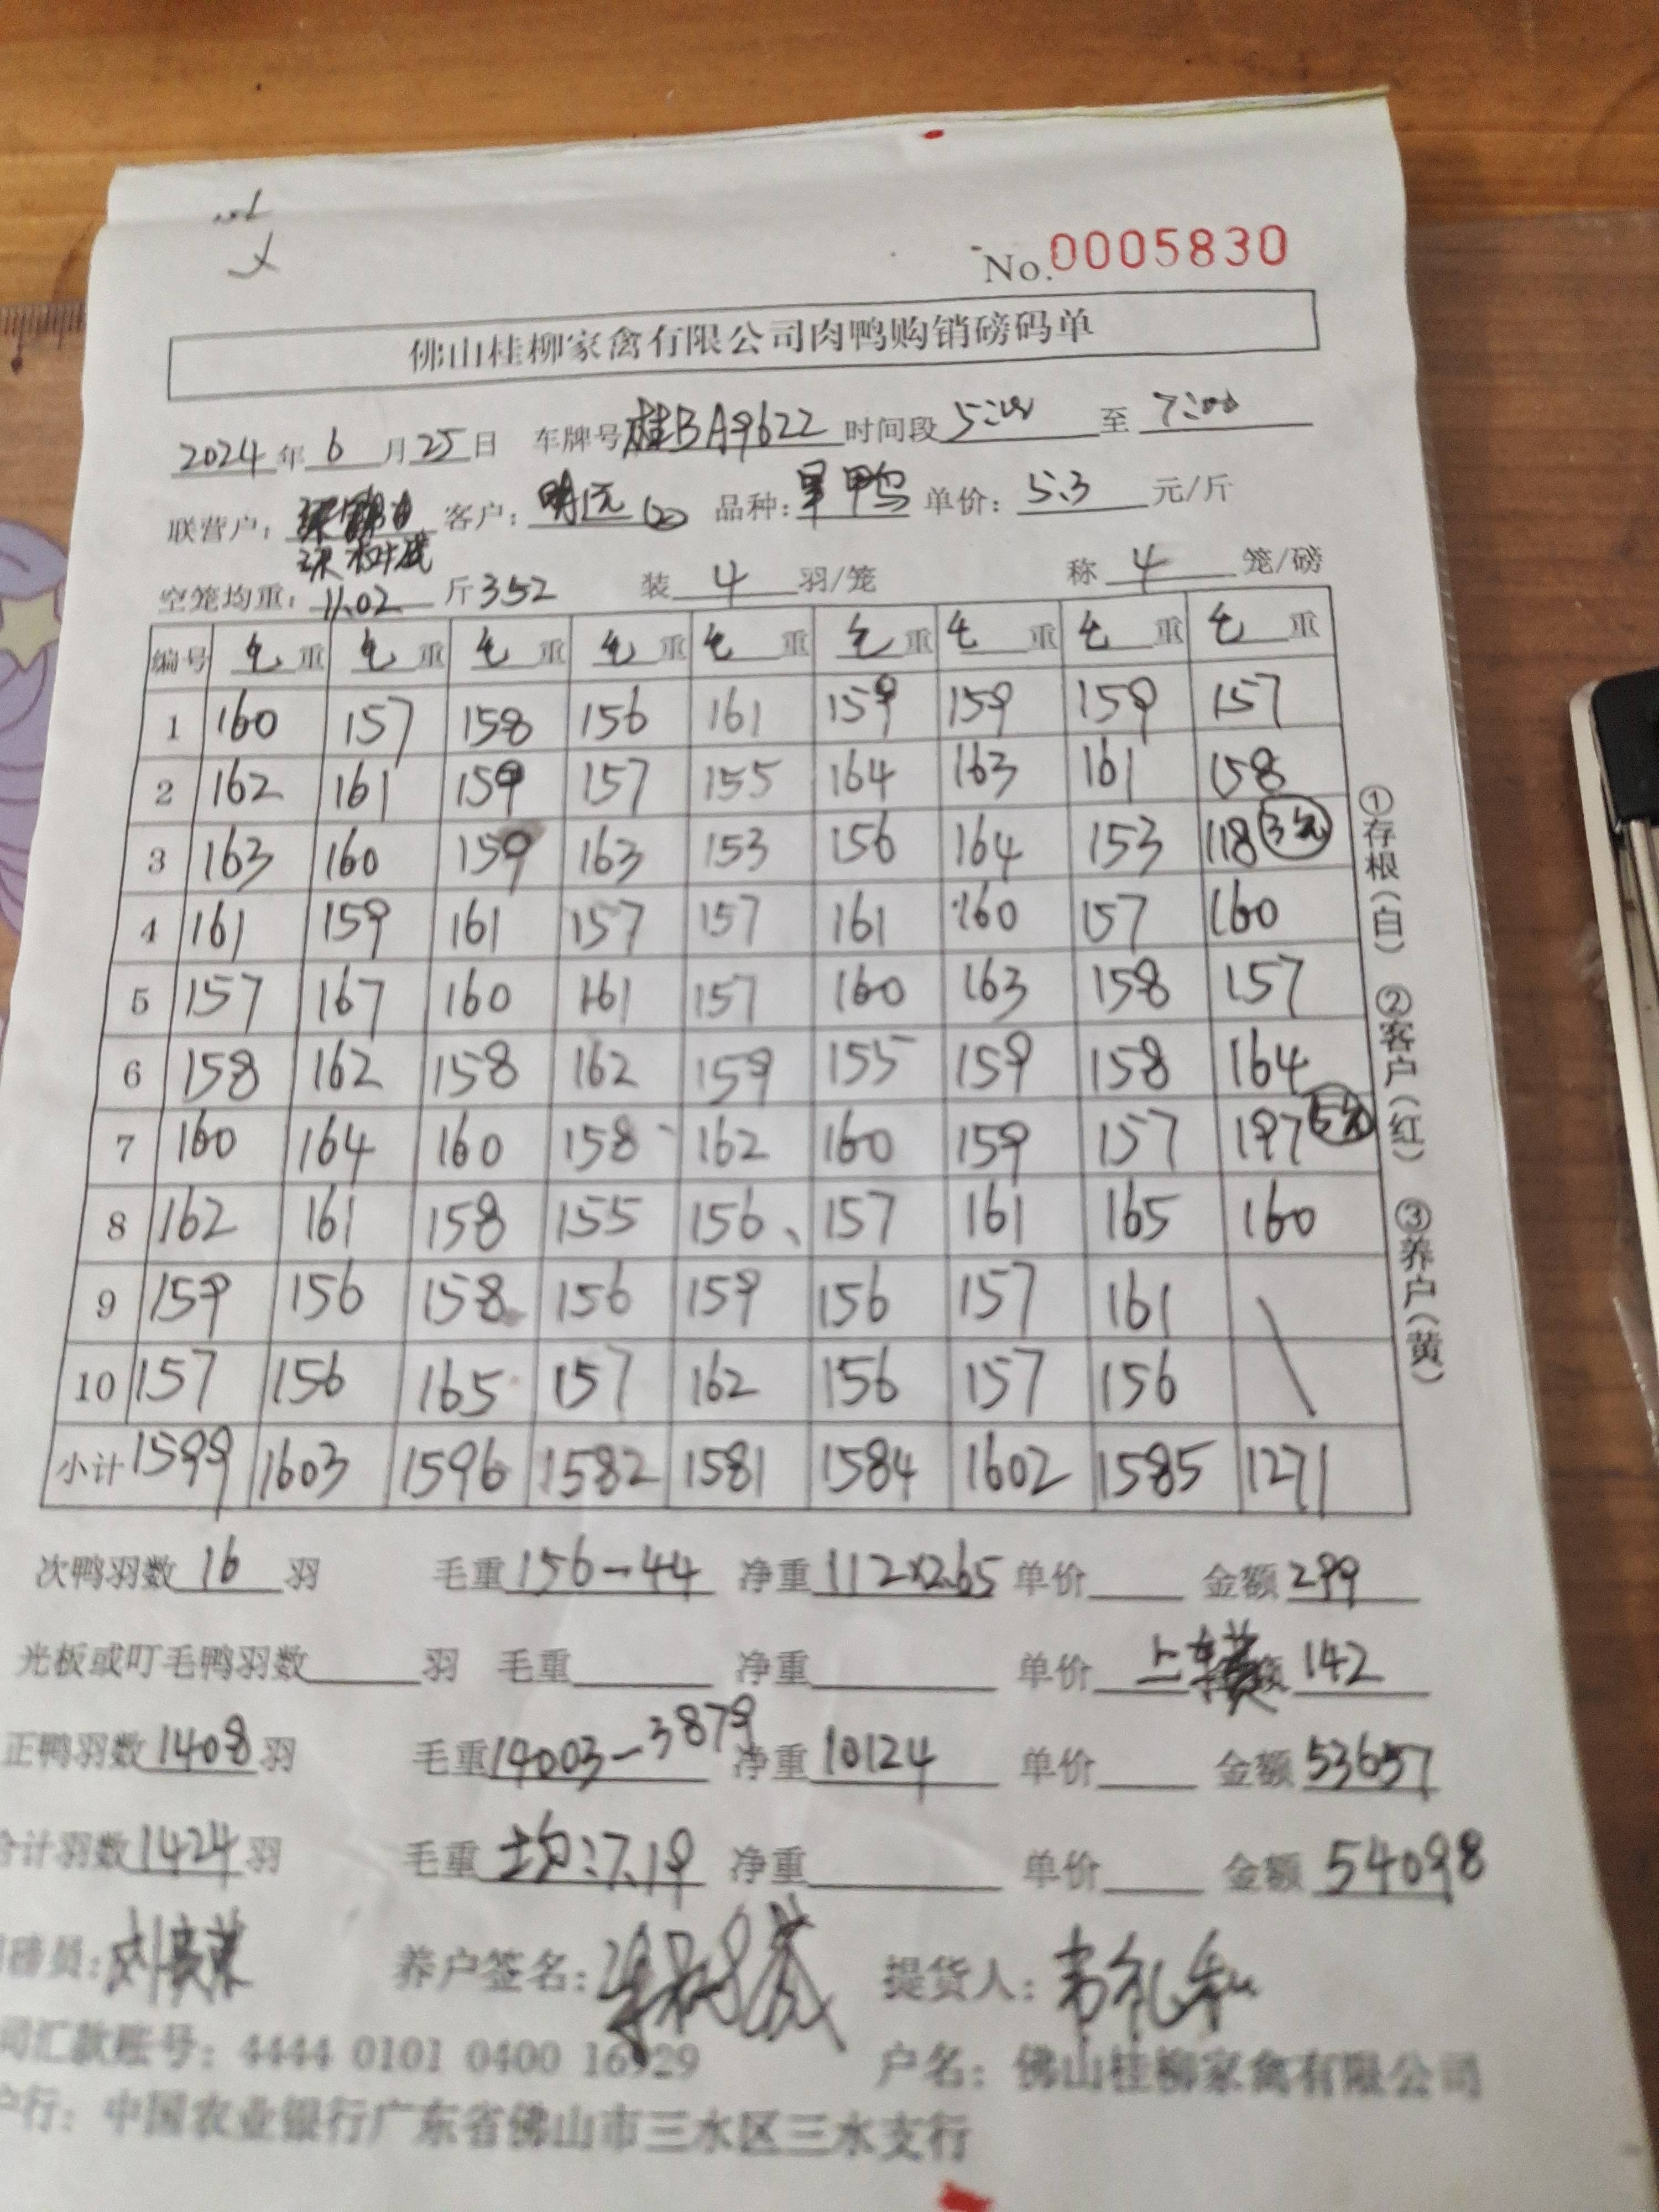 No.0005830
佛山桂柳家禽有限公司肉鸭购销磅码单
2024年6月25日 车牌号桂BA9622 时间段5:00至7:00
联营户: 客户:明远(2) 品种:旱鸭 单价:5.3元/斤
空笼均重:11.02斤352 装4羽/笼 称4笼/磅
编号 毛重 毛重 毛重 毛重 毛重 毛重 毛重 毛重 毛重
1 160 157 158 156 161 159 159 159 157
2 162 161 159 157 155 164 163 161 158
3 163 160 159 163 153 156 164 153 118 3笼
4 161 159 161 157 157 161 160 157 160
5 157 167 160 161 157 160 163 158 157
6 158 162 158 162 159 155 159 158 164
7 160 164 160 158 162 160 159 157 197 5笼
8 162 161 158 155 156 157 161 165 160
9 159 156 158 156 159 156 157 161
10 157 156 165 157 162 156 157 156
小计 1599 1603 1596 1582 1581 1584 1602 1585 1271
①存根(白) ②客户(红) ③养户(黄)
次鸭羽数16羽 毛重156-44 净重112×2.65 单价 金额299
光板或叮毛鸭羽数 羽 毛重 净重 单价 上车 142
正鸭羽数1408羽 毛重14003-3879 净重10124 单价 金额53657
合计羽数1424羽 毛重均:7.19 净重 单价 金额54098
磅员: 养户签名: 提货人:韦礼和
司汇款账号:4444 0101 0400 16929 户名:佛山桂柳家禽有限公司
户行:中国农业银行广东省佛山市三水区三水支行